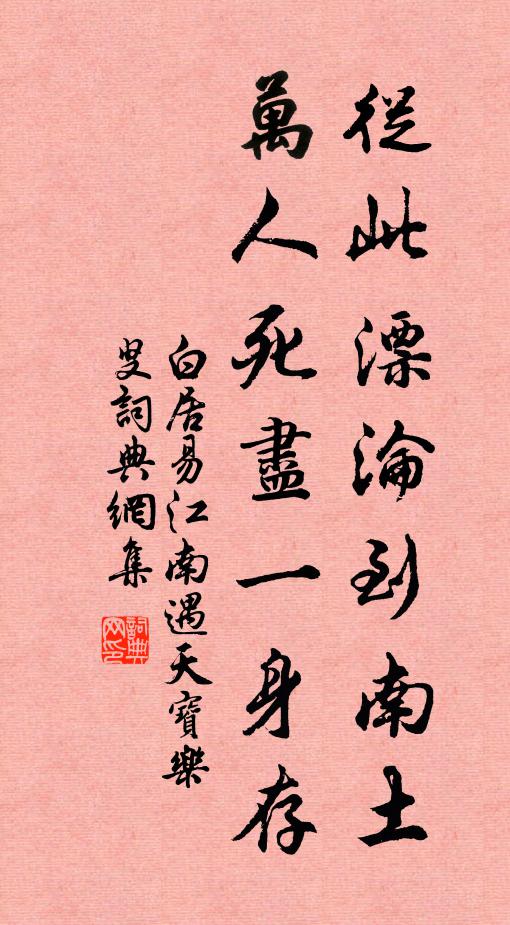 從此漂淪到南土
萬人死盡一身存
白居易江南遇天寶樂
叟詞典網集
詞典
网印